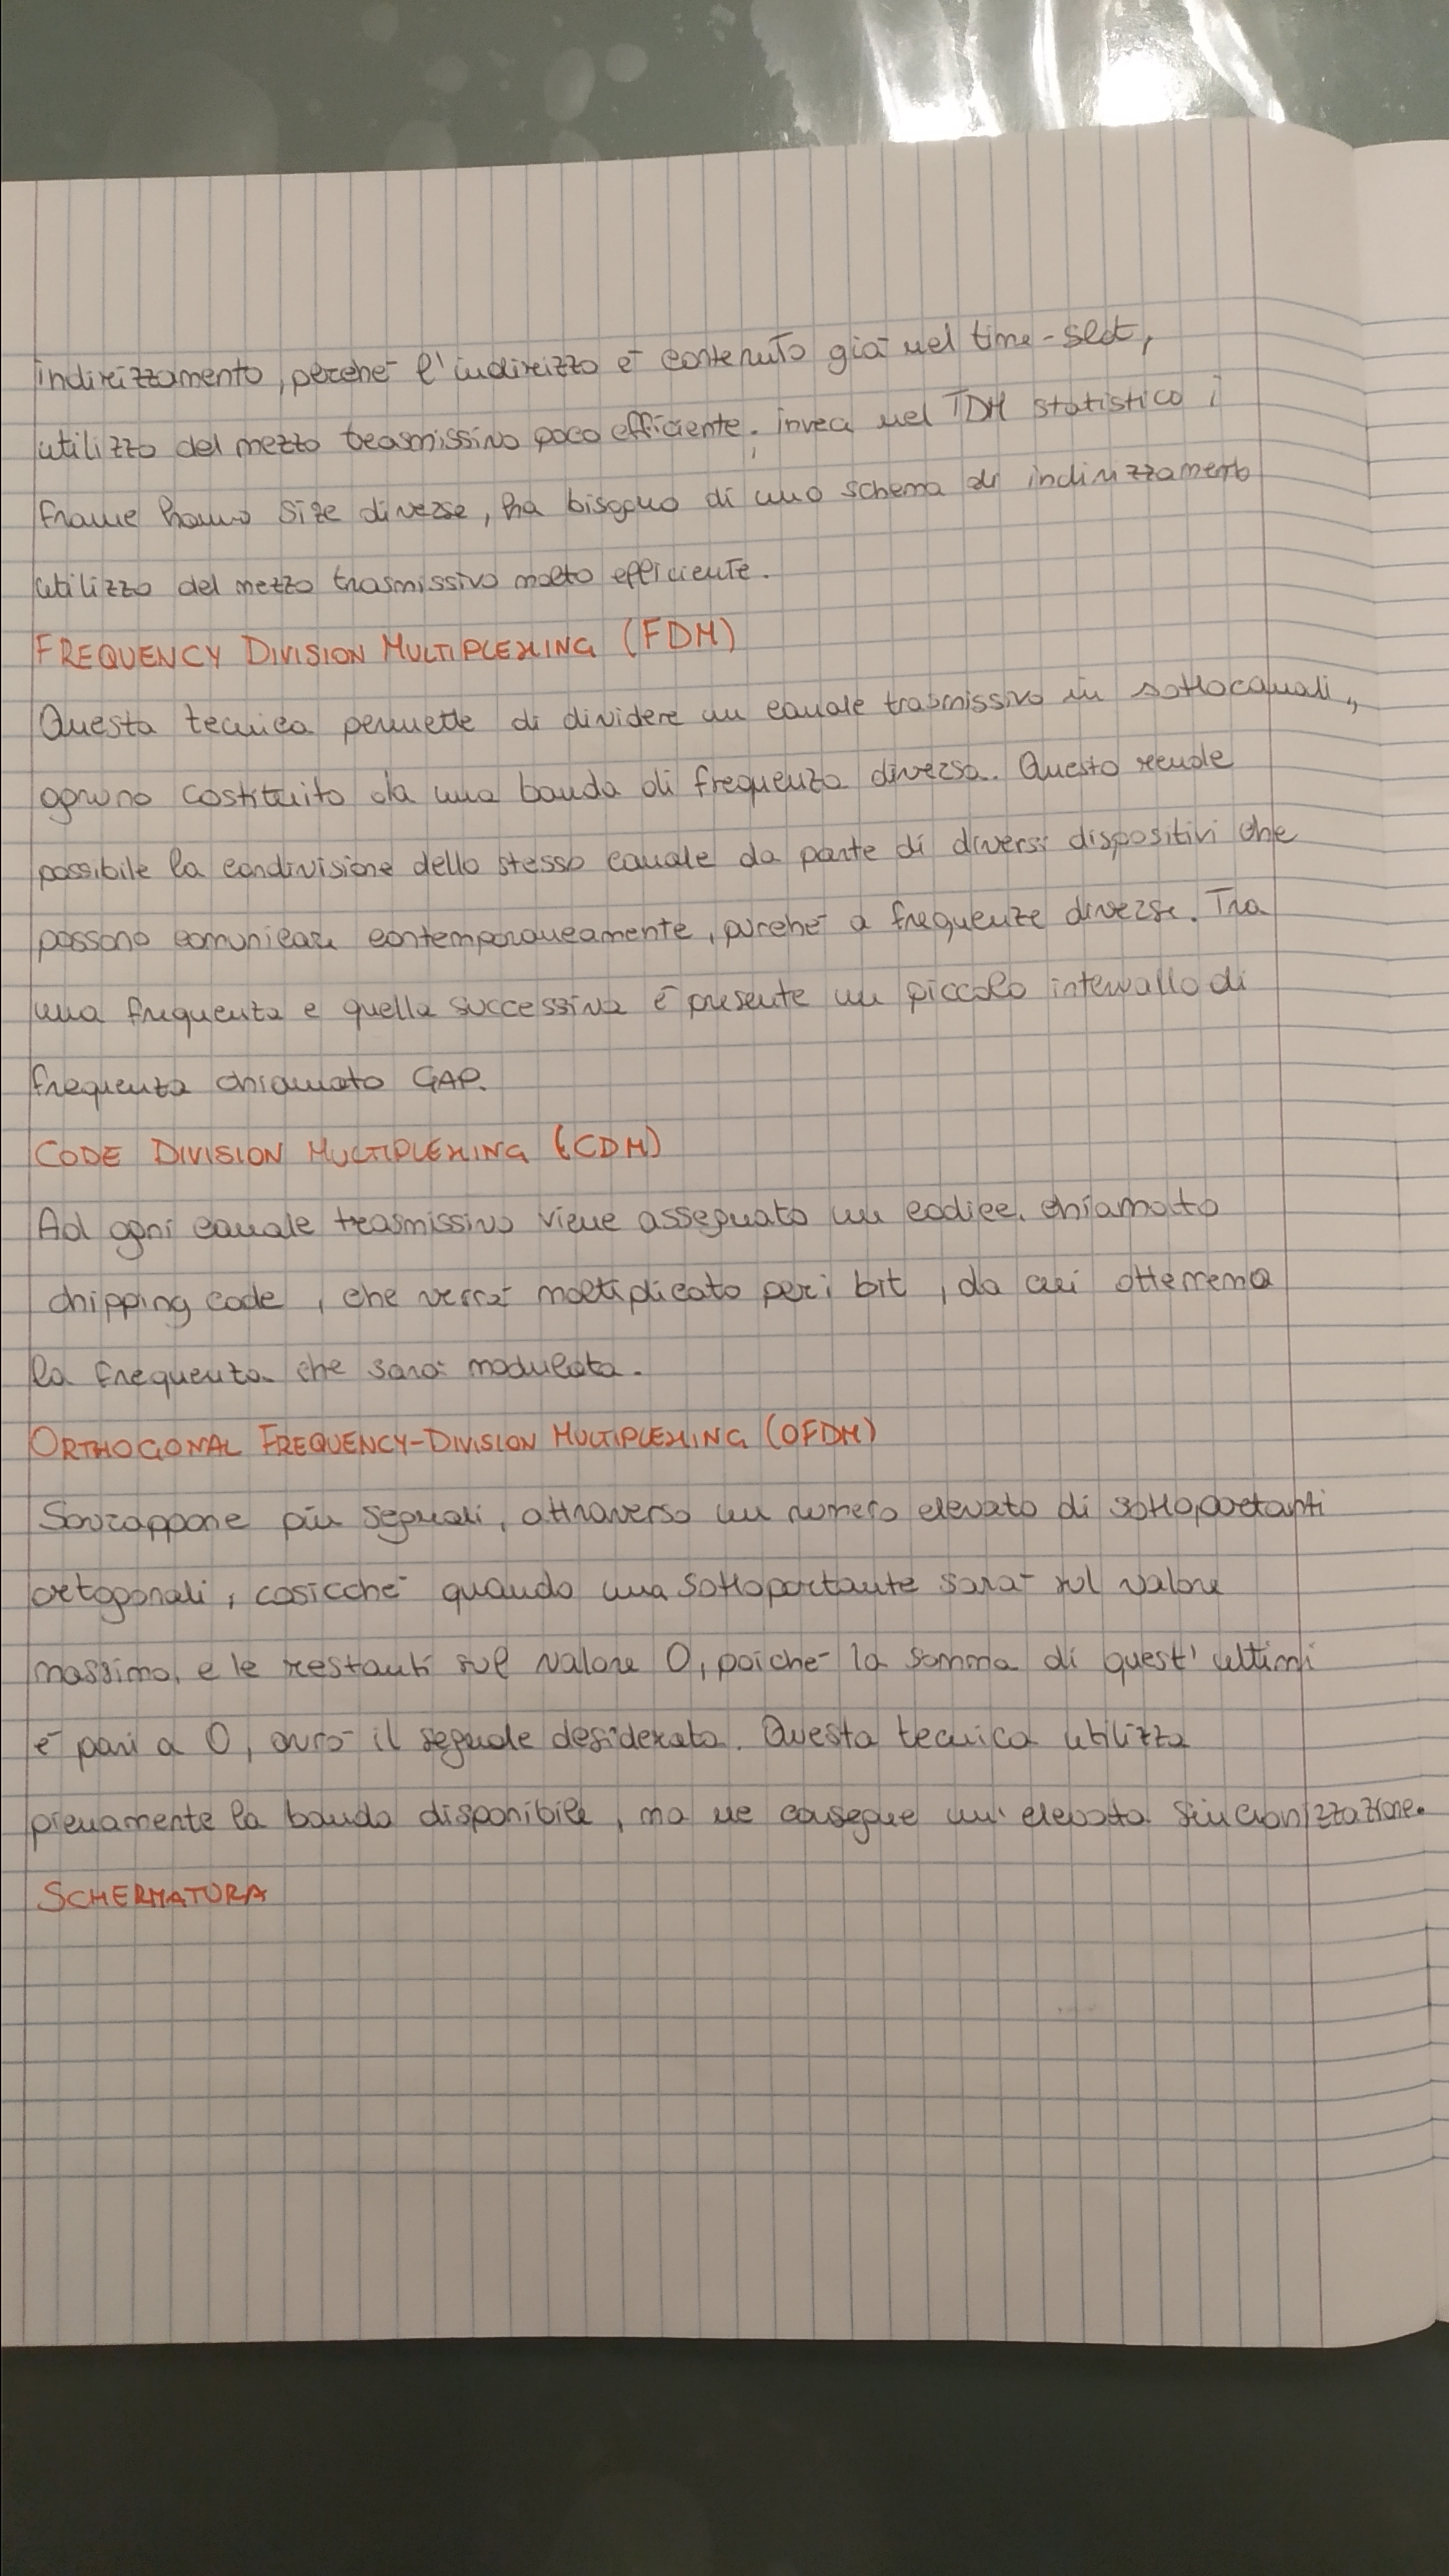 indirizzamento, perché l'indirizzo è contenuto già nel time-slot,
utilizzo del mezzo trasmissivo poco efficiente; invece nel TDM statistico i
frame hanno size diverse, ha bisogno di uno schema di indirizzamento
utilizzo del mezzo trasmissivo molto efficiente.
FREQUENCY DIVISION MULTIPLEXING (FDM)
Questa tecnica permette di dividere un canale trasmissivo in sottocanali,
ognuno costituito da una banda di frequenza diversa. Questo rende
possibile la condivisione dello stesso canale da parte di diversi dispositivi che
possono comunicare contemporaneamente, purché a frequenze diverse. Tra
una frequenza e quella successiva è presente un piccolo intervallo di
frequenza chiamato GAP.
CODE DIVISION MULTIPLEXING (CDM)
Ad ogni canale trasmissivo viene assegnato un codice, chiamato
chipping code, che verrà moltiplicato per i bit, da cui otterremo
la frequenza che sarà modulata.
ORTHOGONAL FREQUENCY-DIVISION MULTIPLEXING (OFDM)
Sovrappone più segnali, attraverso un numero elevato di sottoportanti
ortogonali, cosicché quando una sottoportante sarà sul valore
massimo, e le restanti sul valore 0, poiché la somma di quest'ultimi
è pari a 0, avrò il segnale desiderato. Questa tecnica utilizza
pienamente la banda disponibile, ma ne consegue un'elevata sincronizzazione.
SCHERMATURA